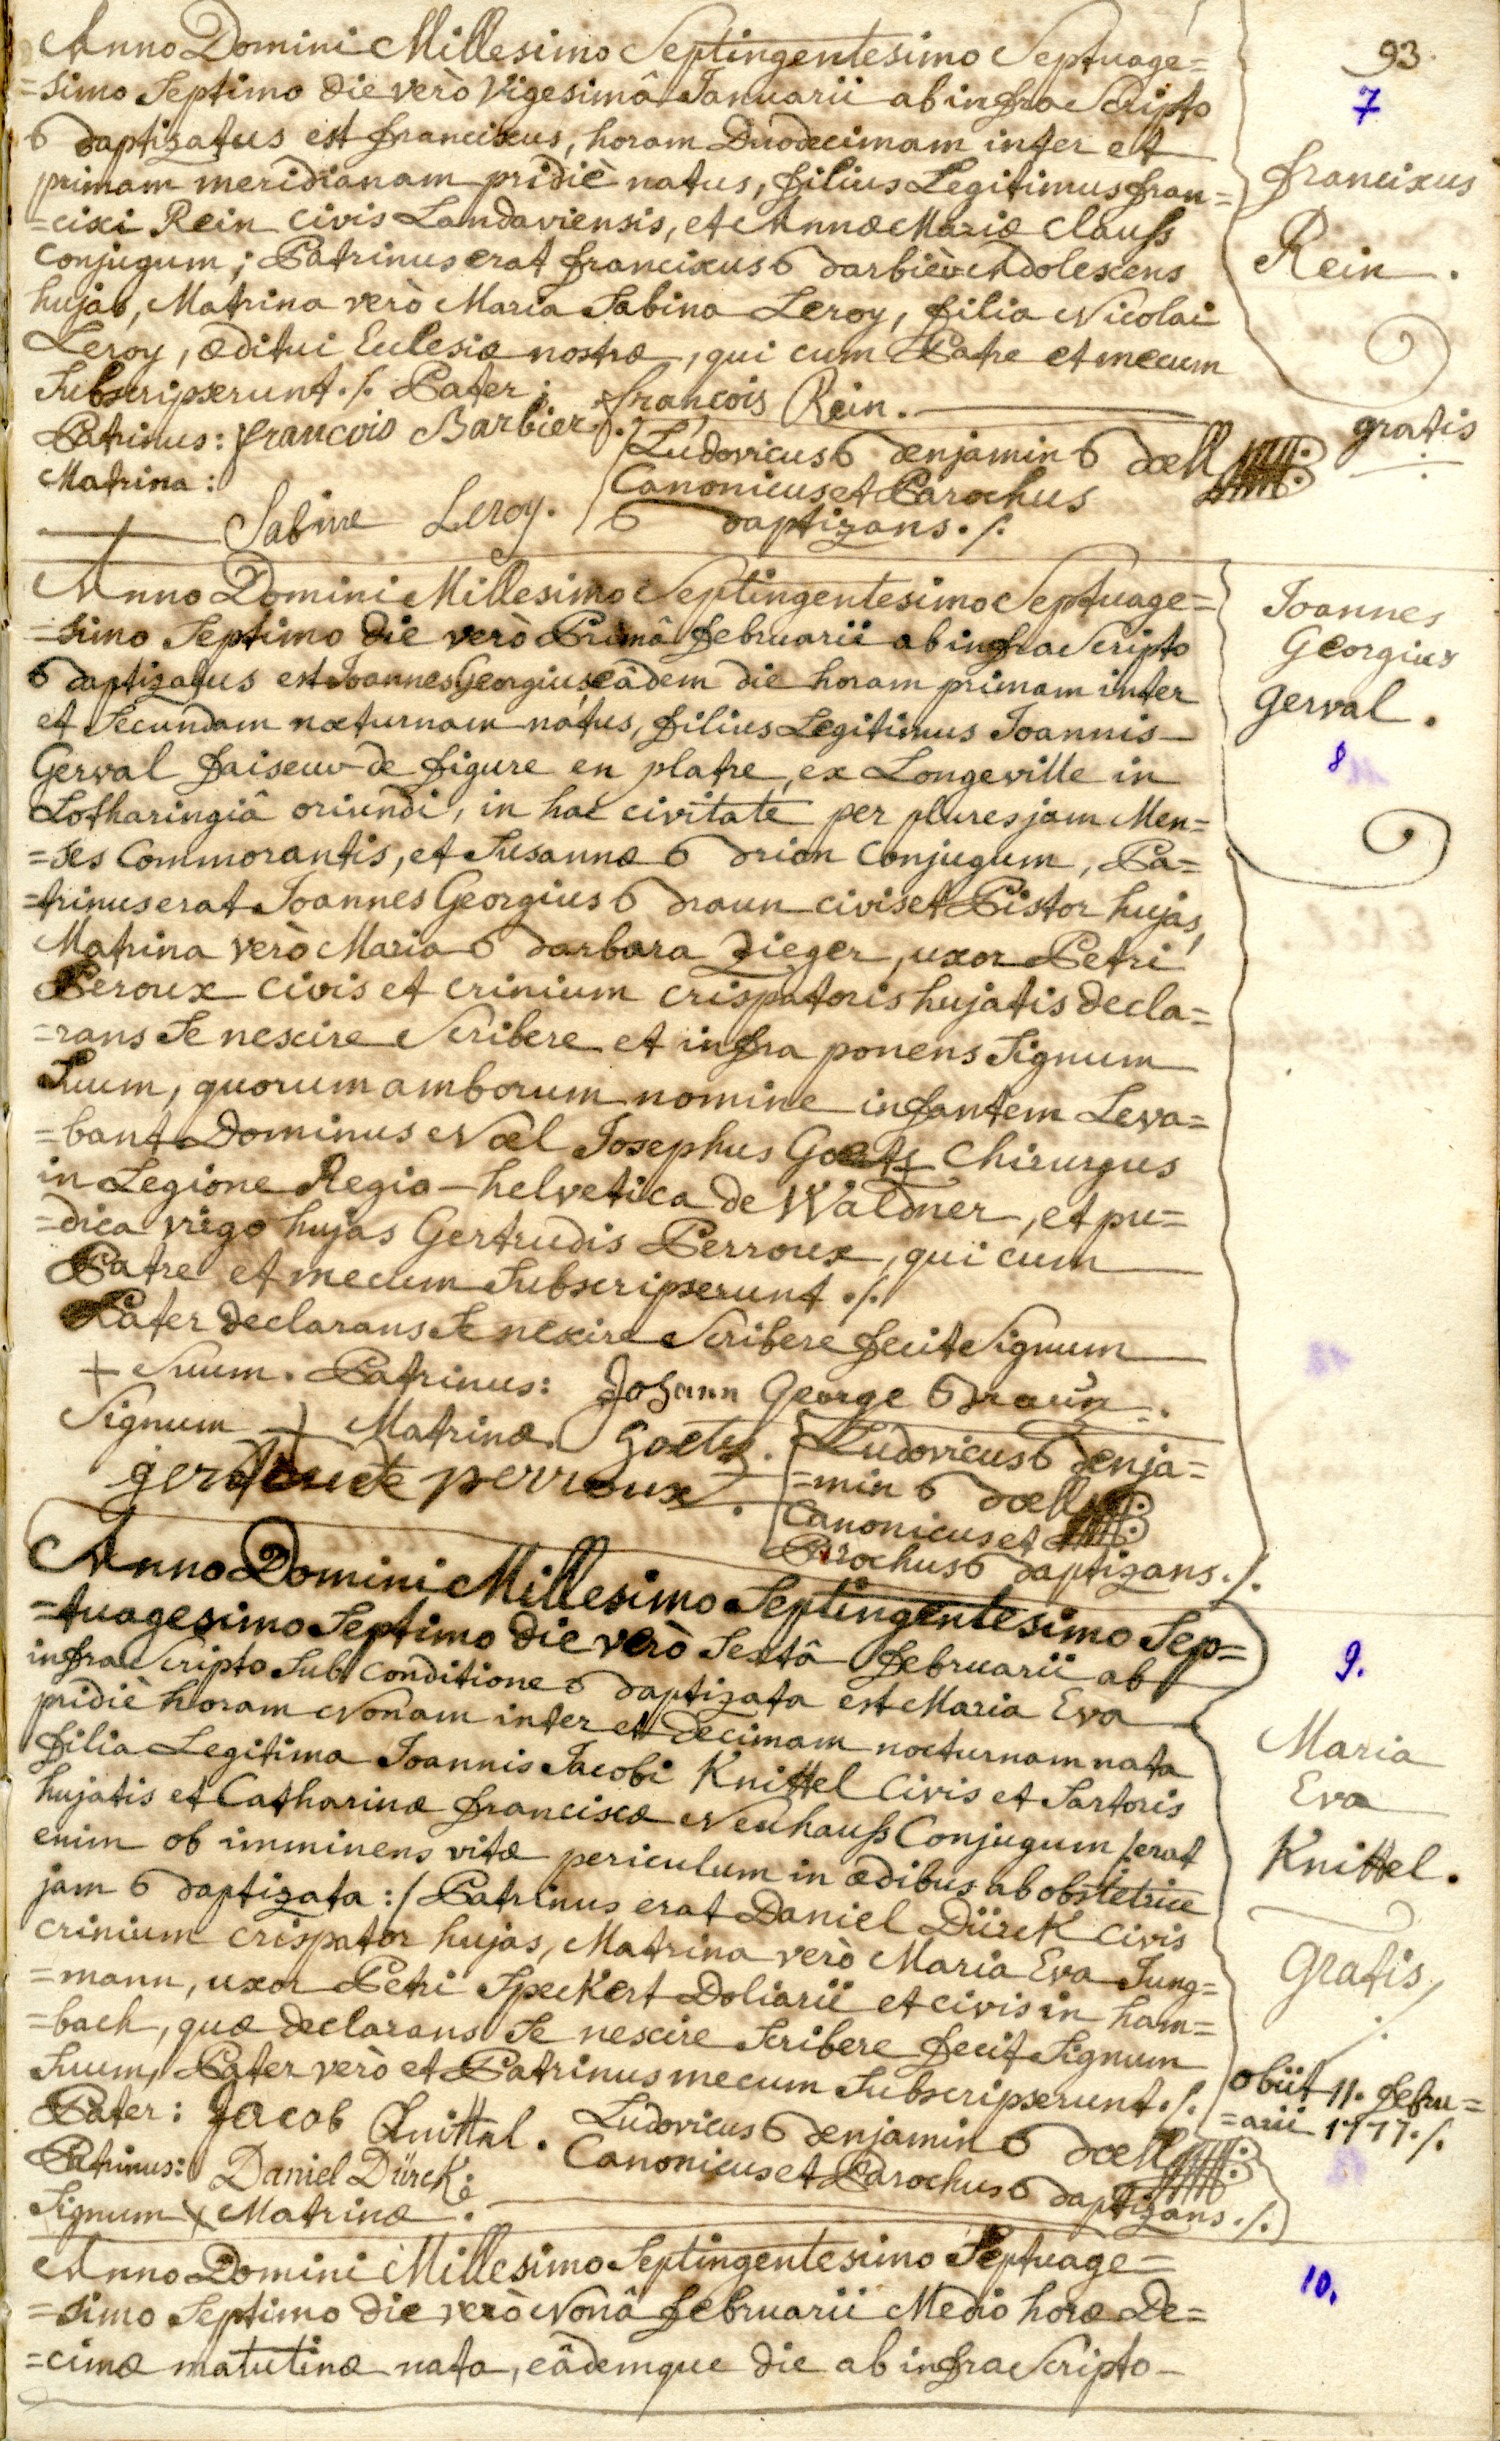 93.
Anno Domini Millesimo Septingentesimo Septuage=
=simo Septimo die verò Vigesimâ Januarii ab infra Scripto
7
Baptizatus est franciscus, horam Duodecimam inter et
primam meridianam pridiè natus, filius Legitimus fran=
franciscus
=cisci Rein civis Landaviensis, et Annæ Mariæ Clauß
Rein.
Conjugum; Patrinus erat franciscus Barbier Adolescens
hujas, Matrina verò Maria Sabina Leroy, filia Nicolai
Leroy, æditui Ecclesiæ nostræ, qui cum Patre et mecum
Subscripserunt ./. Pater: françois Rein.
gratis
Patrinus: francois Barbier.
Ludovicus Benjamin Boell
Matrina:
Canonicus et Parochus
Sabine Leroy.
Baptizans ./.
Anno Domini Millesimo Septingentesimo Septuage=
=simo Septimo die verò Primâ februarii ab infra Scripto
Joannes
Georgius
gerval.
8
Baptizatus est Joannes Georgius, eâdem die horam primam inter
et Secundam nocturnam natus, filius Legitimus Joannis
Gerval faiseur de figure en platre, ex Longeville in
Lotharingiâ oriundi, in hac civitate per plures jam Men=
=ses Commorantis, et Susannæ Brion Conjugum, Pa=
=trinus erat Joannes Georgius Braun civis et Pistor hujas,
Matrina verò Maria Barbara Zieger, uxor Petri
Peroux Civis et crinium crispatoris hujatis decla=
=rans Se nescire Scribere et infra ponens Signum
Suum, quorum amborum nomine infantem Leva=
=bant Dominus Noël Josephus Goetz Chirurgus
in Legione Regia-helvetica de Waldner, et pu=
=dica virgo hujas Gertrudis Perroux, qui cum
Patre et mecum Subscripserunt ./.
Pater declarans Se nescire Scribere fecit Signum
+ Suum. Patrinus: Johann George Braun.
Signum + Matrinæ. Goetz.
Ludovicus Benja=
gertrude perroux.
=min Boell
Canonicus et
Parochus Baptizans ./.
Anno Domini Millesimo Septingentesimo Sep=
=tuagesimo Septimo die verò Sextâ februarii ab
9.
infra Scripto Sub Conditione Baptizata est Maria Eva
pridiè horam Nonam inter et decimam nocturnam nata
Maria
Eva
Knittel.
filia Legitima Joannis Jacobi Knittel Civis et Sartoris
hujatis et Catharinæ franciscæ Neuhauß Conjugum /:erat
enim ob imminens vitæ periculum in ædibus ab obstetrice
jam Baptizata:/ Patrinus erat Daniel Dürck Civis
Gratis
./.
crinium crispator hujas, Matrina verò Maria Eva Jung=
=mann, uxor Petri Speckert Doliarii et civis in ham=
=bach, quæ declarans Se nescire Scribere fecit Signum
Suum, Pater verò et Patrinus mecum Subscripserunt ./.
obiit 11. febru=
=arii 1777 ./.
Pater: Jacob Knittel.
Ludovicus Benjamin Boell
Patrinus: Daniel Dürck.
Canonicus et Parochus Baptizans ./.
Signum + Matrinæ.
Anno Domini Millesimo Septingentesimo Septuage=
10.
=simo Septimo die verò Nonâ februarii Mediò horæ De=
=cimæ matutinæ nata, eâdemque die ab infra Scripto